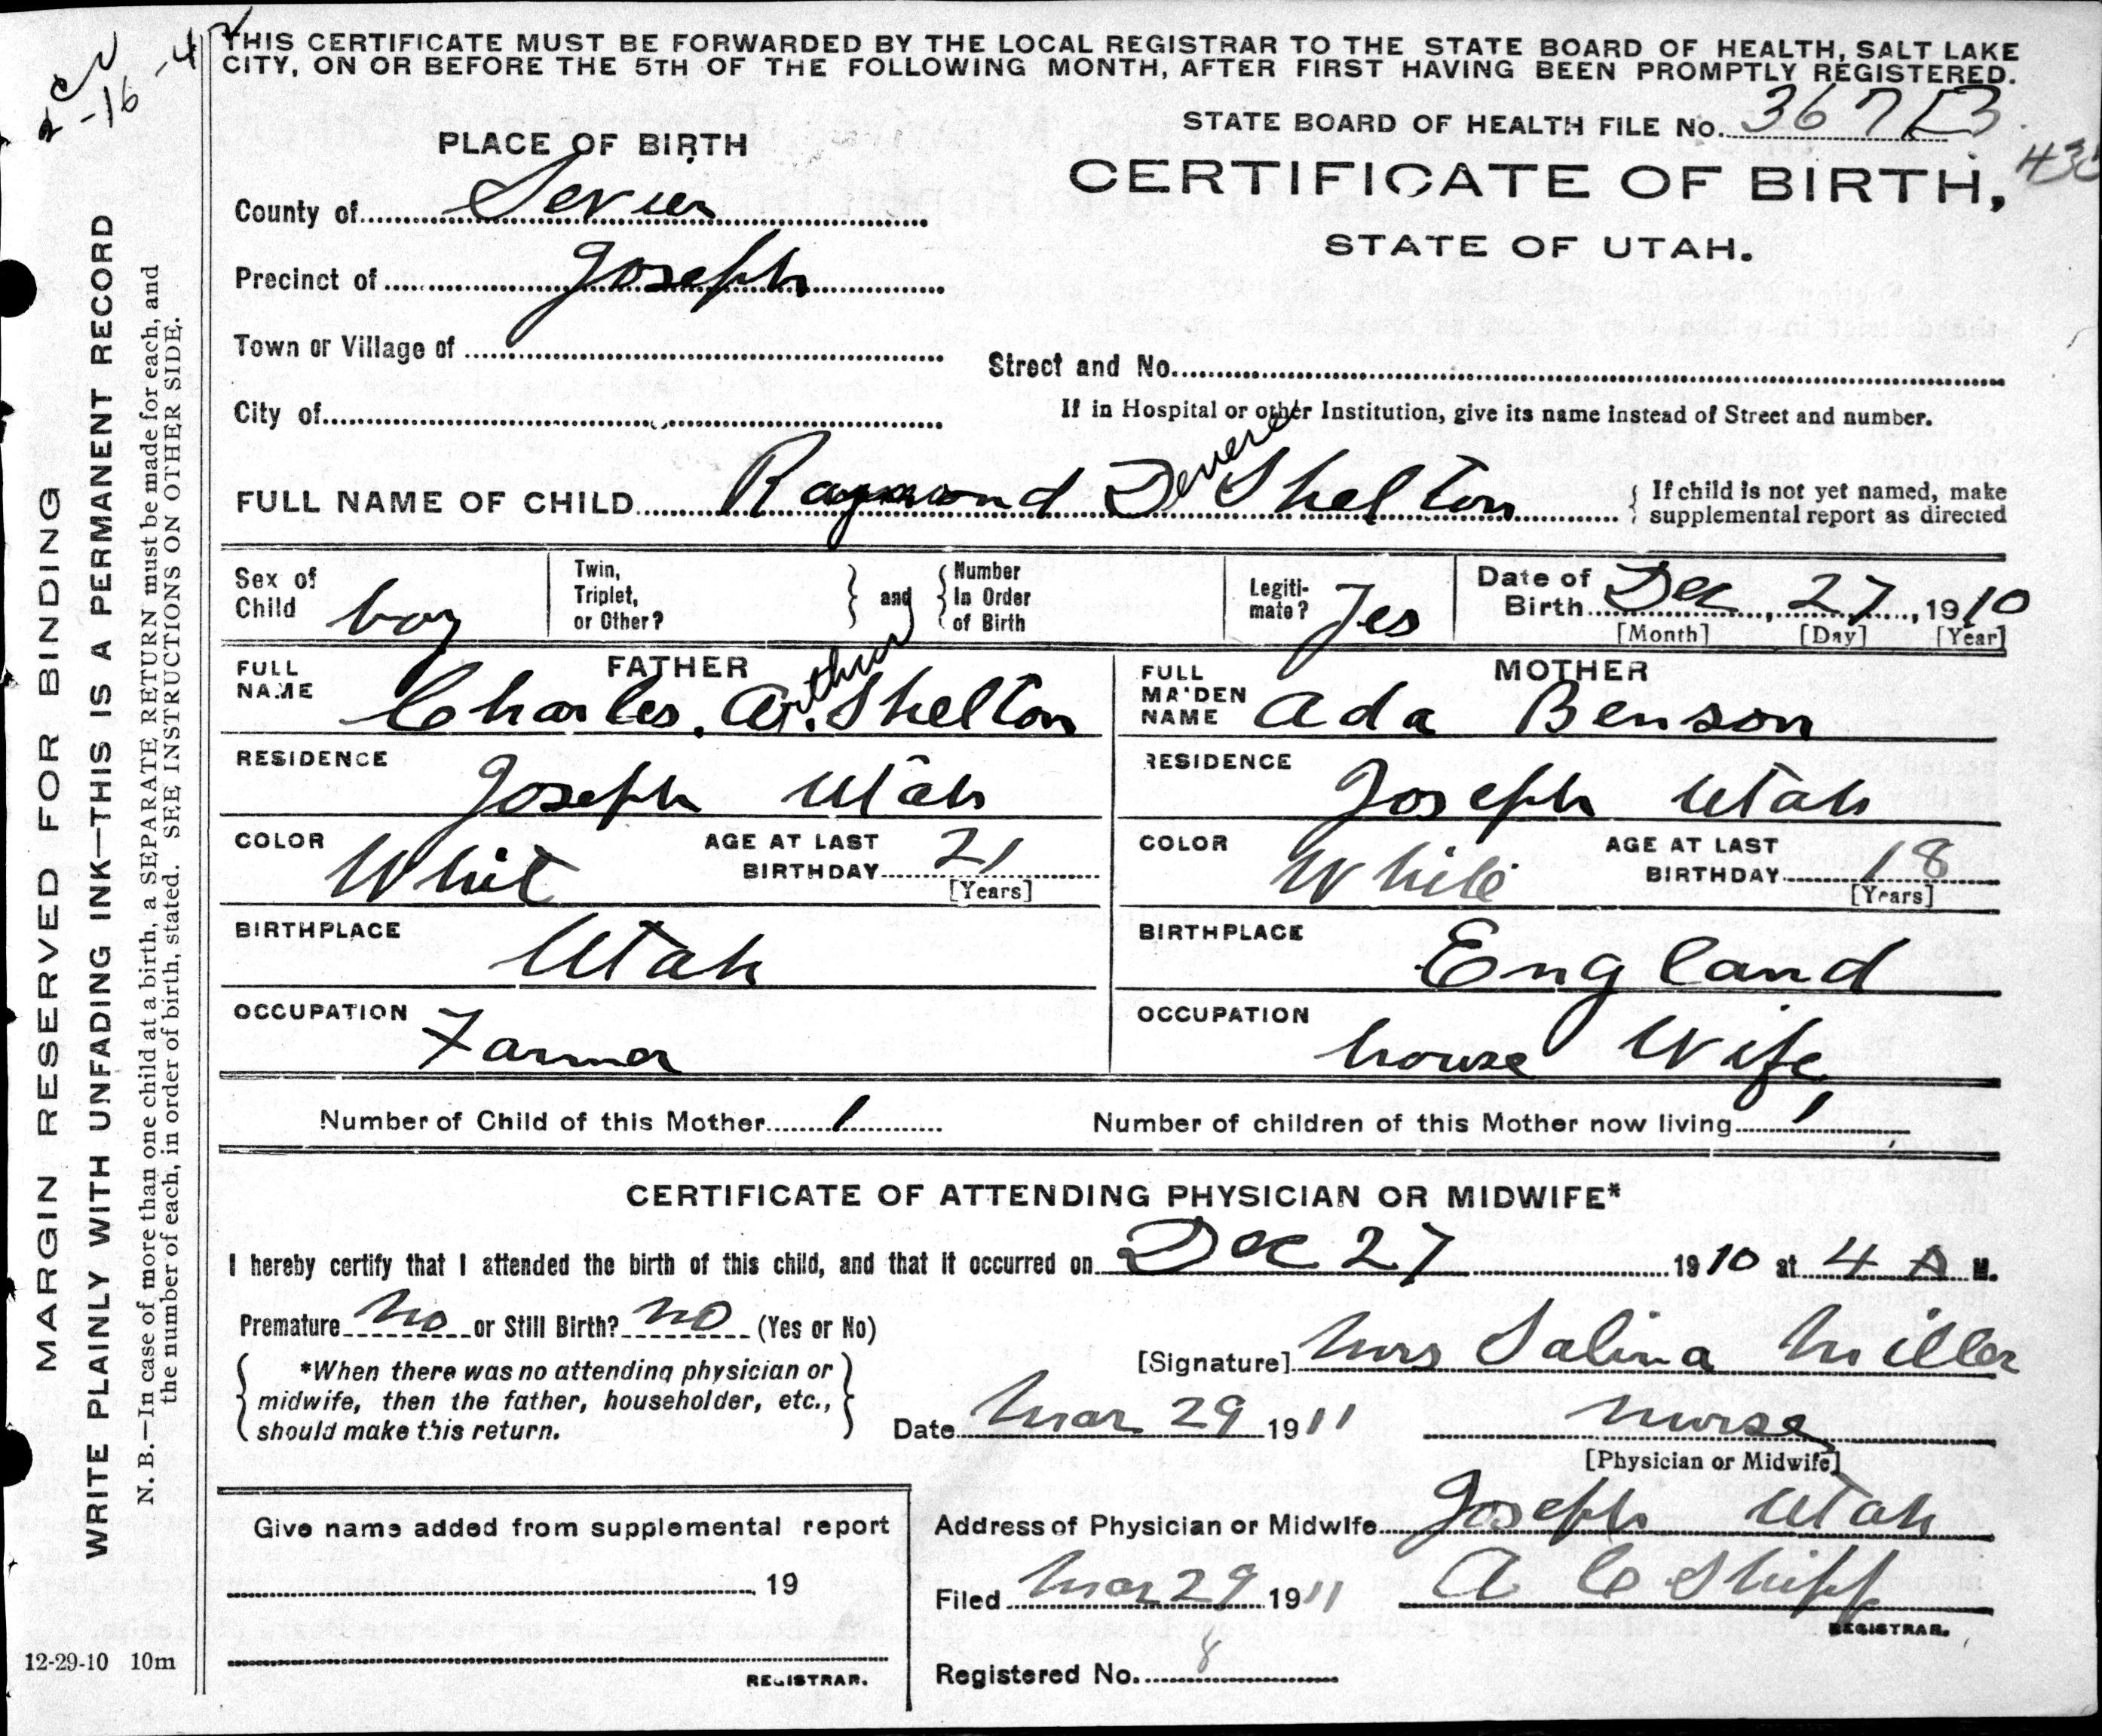 THIS CERTIFICATE MUST BE FORWARDED BY THE LOCAL REGISTRAR TO THE STATE BOARD OF HEALTH, SALT LAKE
CITY, ON OR BEFORE THE 5TH OF THE FOLLOWING MONTH, AFTER FIRST HAVING BEEN PROMPTLY REGISTERED.
STATE BOARD OF HEALTH FILE No.
PLACE OF BIRTH
CERTIFICATE OF BIRTH,
STATE OF UTAH.
County of Sevier
Precinct of Joseph
Town or Village of
Street and No.
City of
If in Hospital or other Institution, give its name instead of Street and number.
FULL NAME OF CHILD Raymond Devere Shelton
If child is not yet named, make
supplemental report as directed
Sex of Child boy
Twin, Triplet, or Other?
and
Number In Order of Birth
Legiti-mate? Yes
Date of Birth Dec, 27, 1910
[Month] [Day] [Year]
FATHER
FULL NAME Charles. Arthur Shelton
RESIDENCE Joseph Utah
COLOR Whit
AGE AT LAST BIRTHDAY 21
[Years]
BIRTHPLACE Utah
OCCUPATION Farmer
MOTHER
FULL MAIDEN NAME Ada Benson
RESIDENCE Joseph Utah
COLOR White
AGE AT LAST BIRTHDAY 18
[Years]
BIRTHPLACE England
OCCUPATION house Wife
Number of Child of this Mother 1
Number of children of this Mother now living 1
CERTIFICATE OF ATTENDING PHYSICIAN OR MIDWIFE*
I hereby certify that I attended the birth of this child, and that it occurred on Dec 27 1910 at 4 A M.
Premature no or Still Birth? no (Yes or No)
*When there was no attending physician or
midwife, then the father, householder, etc.,
should make this return.
[Signature] Mrs Salina Miller
Date Mar 29 1911
nurse
[Physician or Midwife]
Give name added from supplemental report
19
REGISTRAR.
Address of Physician or Midwife Joseph Utah
Filed Mar 29 1911
A C Shipp
REGISTRAR.
Registered No. 8
MARGIN RESERVED FOR BINDING
WRITE PLAINLY WITH UNFADING INK—THIS IS A PERMANENT RECORD
N. B.—In case of more than one child at a birth, a SEPARATE RETURN must be made for each, and
the number of each, in order of birth, stated. SEE INSTRUCTIONS ON OTHER SIDE.
12-29-10 10m